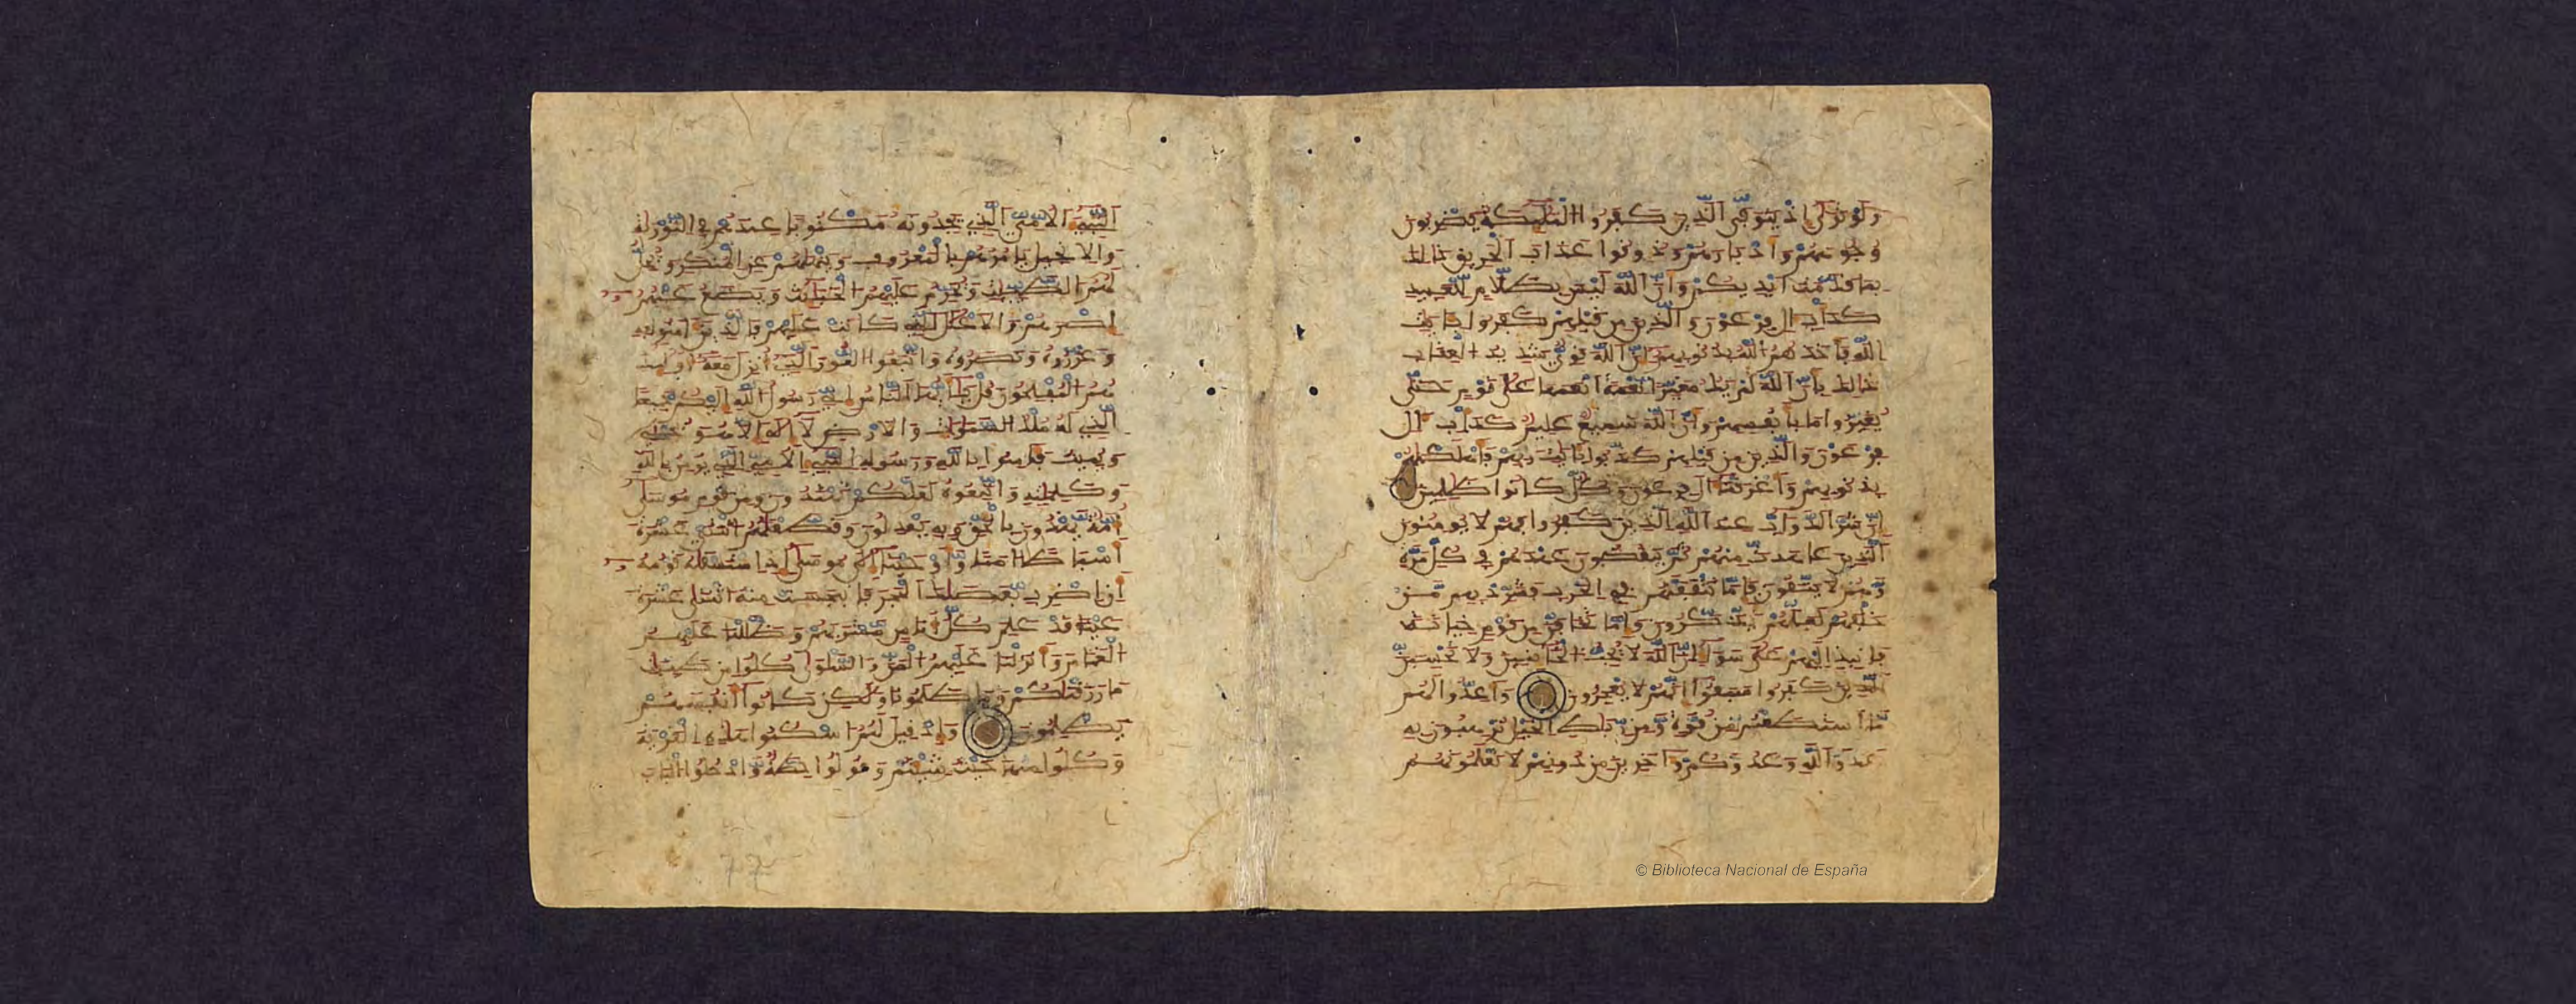 ولو ترى إذ يتوفى الذين كفروا الملئكة يضربون
وجوههم وأدبارهم وذوقوا عذاب الحريق ذلك
بما قدمت أيديكم وأن الله ليس بظلام للعبيد
كدأب ءال فرعون والذين من قبلهم كفروا بئايت
الله فأخذهم الله بذنوبهم إن الله قوي شديد العقاب
ذلك بأن الله لم يك مغيرا نعمة أنعمها على قوم حتى
يغيروا ما بأنفسهم وأن الله سميع عليم كدأب ءال
فرعون والذين من قبلهم كذبوا بئايت ربهم فأهلكنهم
بذنوبهم وأغرقنا ءال فرعون وكل كانوا ظلمين
إن شر الدواب عند الله الذين كفروا فهم لا يومنون
الذين عاهدت منهم ثم ينقضون عهدهم في كل مرة
وهم لا يتقون فإما تثقفنهم في الحرب فشرد بهم من
خلفهم لعلهم يذكرون وإما تخافن من قوم خيانة
فانبذ إليهم على سواء إن الله لا يحب الخائنين ولا تحسبن
الذين كفروا سبقوا إنهم لا يعجزون وأعدوا لهم
ما استطعتم من قوة ومن رباط الخيل ترهبون به
عدو الله وعدوكم وءاخرين من دونهم لا تعلمونهم
النبيء الأمي الذي يجدونه مكتوبا عندهم في التورية
والإنجيل يأمرهم بالمعروف وينهيهم عن المنكر ويحل
لهم الطيبت ويحرم عليهم الخبئث ويضع عنهم
إصرهم والأغلل التي كانت عليهم فالذين ءامنوا به
وعزروه ونصروه واتبعوا النور الذي أنزل معه أولئك
هم المفلحون قل يأيها الناس إني رسول الله إليكم جميعا
الذي له ملك السموت والأرض لا إله إلا هو يحيي
ويميت فئامنوا بالله ورسوله النبيء الأمي الذي يومن بالله
وكلمته واتبعوه لعلكم تهتدون ومن قوم موسى
أمة يهدون بالحق وبه يعدلون وقطعنهم اثنتي عشرة
أسباطا أمما وأوحينا إلى موسى إذ استسقيه قومه
أن اضرب بعصاك الحجر فانبجست منه اثنتا عشرة
عينا قد علم كل أناس مشربهم وظللنا عليهم
الغمم وأنزلنا عليهم المن والسلوى كلوا من طيبت
ما رزقنكم وما ظلمونا ولكن كانوا أنفسهم
يظلمون وإذ قيل لهم اسكنوا هذه القرية
وكلوا منها حيث شئتم وقولوا حطة وادخلوا الباب
77
© Biblioteca Nacional de España